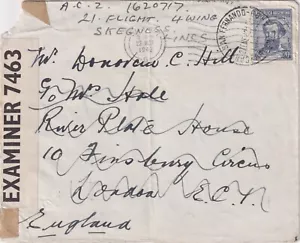 A.C.2. 1620717.
21. FLIGHT. 4 WING
SKEGNESS
LINCS
Mr. Donovan C. Hill
c/o Mr Hall
River Plate House
10 Finsbury Circus
London E.C.
England
EXAMINER 7463